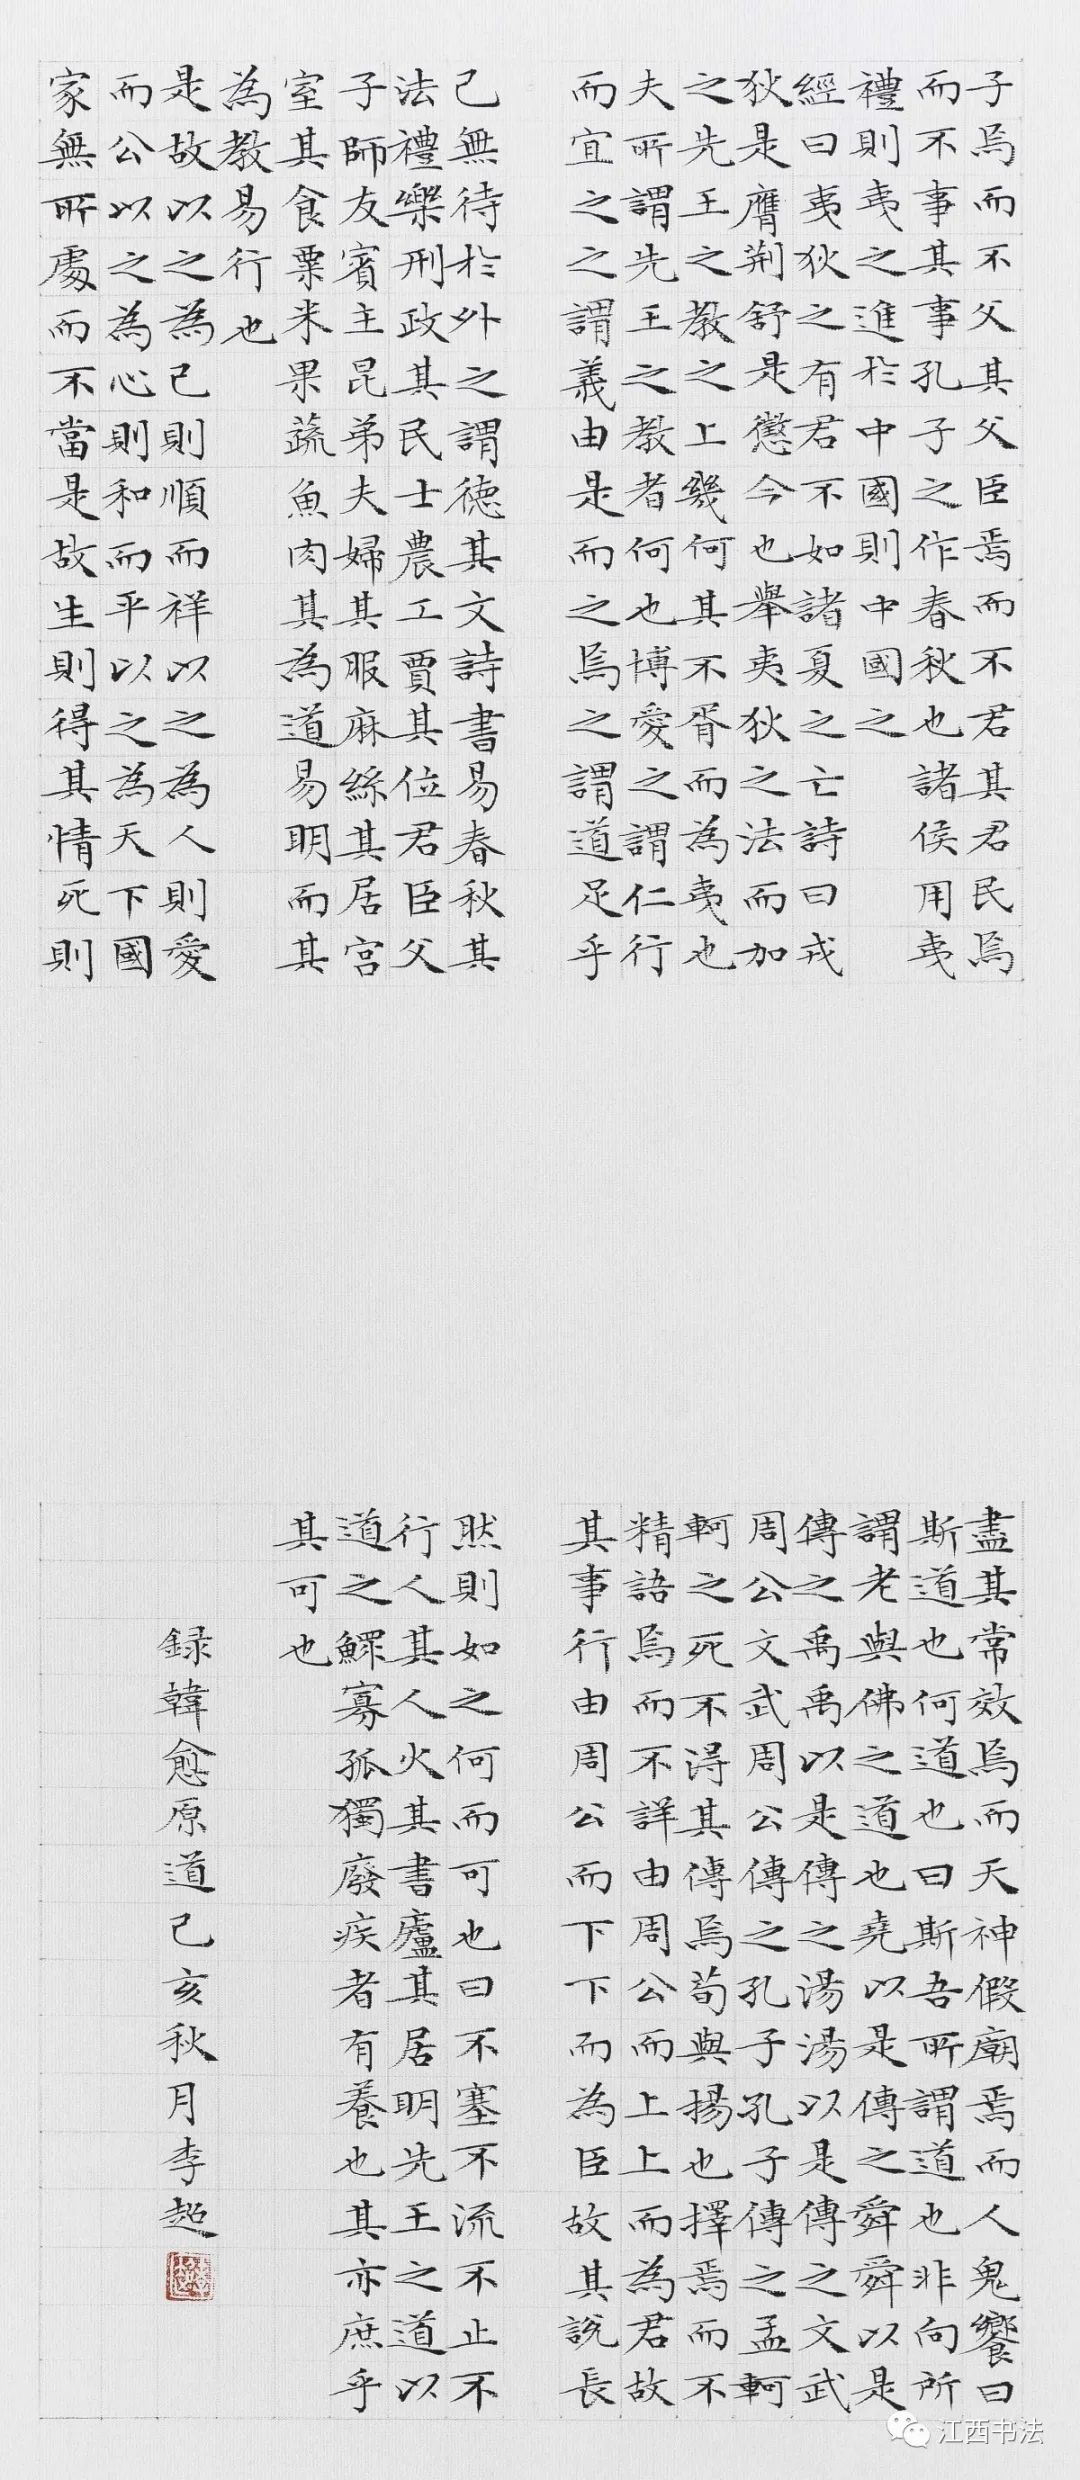 子焉而不父其父臣焉而不君其君民焉
而不事其事孔子之作春秋也諸侯用夷
禮則夷之進於中國則中國之
經曰夷狄之有君不如諸夏之亡詩曰戎
狄是膺荆舒是懲今也舉夷狄之法而加
之先王之教之上幾何其不胥而為夷也
夫所謂先王之教者何也博愛之謂仁行
而宜之之謂義由是而之焉之謂道足乎
己無待於外之謂德其文詩書易春秋其
法禮樂刑政其民士農工賈其位君臣父
子師友賓主昆弟夫婦其服麻絲其居宮
室其食粟米果蔬魚肉其為道易明而其
為教易行也
是故以之為己則順而祥以之為人則愛
而公以之為心則和而平以之為天下國
家無所處而不當是故生則得其情死則
盡其常效焉而天神假廟焉而人鬼饗曰
斯道也何道也曰斯吾所謂道也非向所
謂老與佛之道也堯以是傳之舜舜以是
傳之禹禹以是傳之湯湯以是傳之文武
周公文武周公傳之孔子孔子傳之孟軻
軻之死不得其傳焉荀與揚也擇焉而不
精語焉而不詳由周公而上上而為君故
其事行由周公而下下而為臣故其說長
然則如之何而可也曰不塞不流不止不
行人其人火其書廬其居明先王之道以
道之鰥寡孤獨廢疾者有養也其亦庶乎
其可也
録韓愈原道己亥秋月李超
江西书法